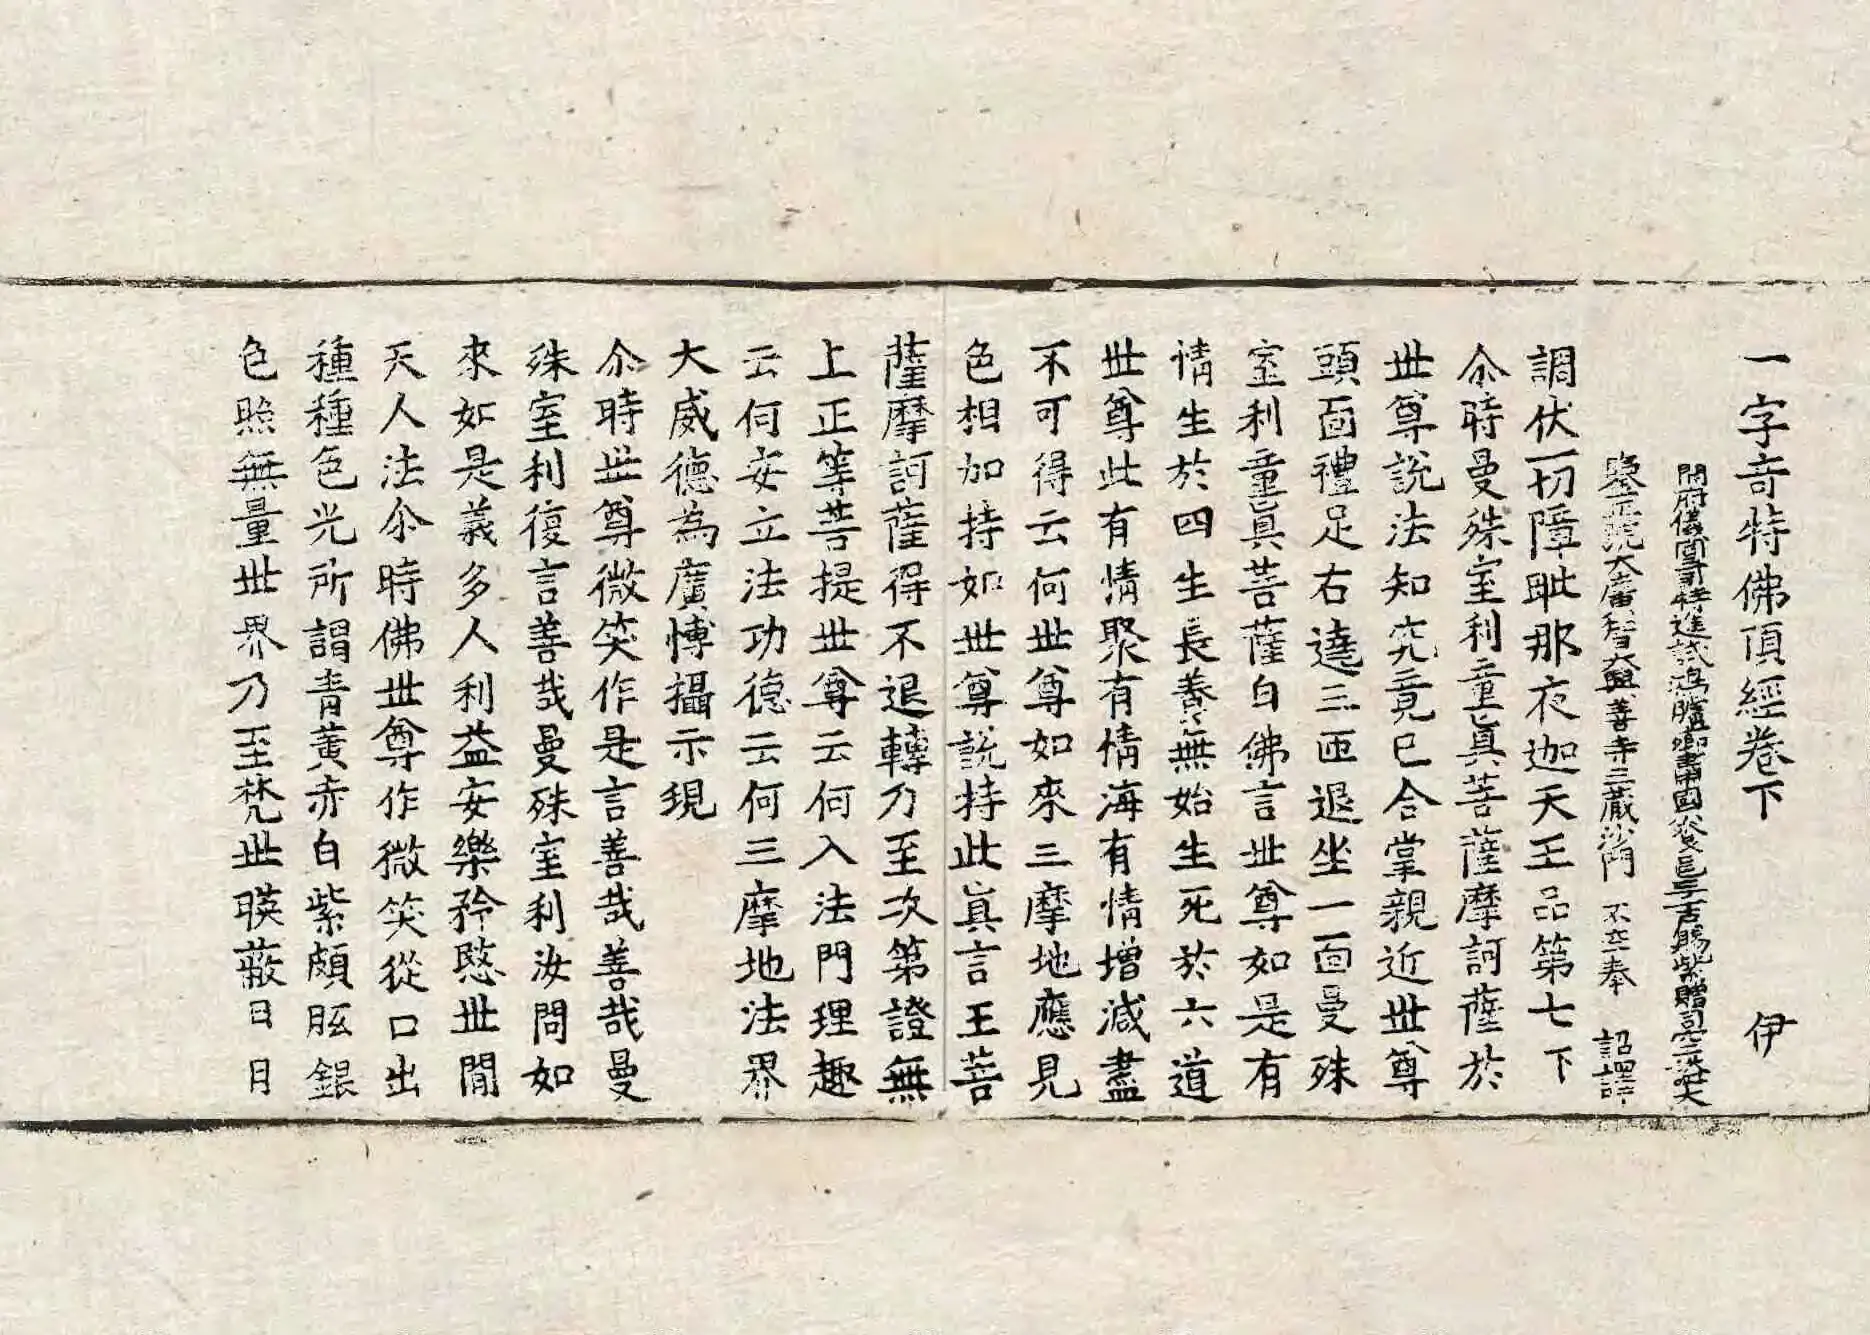 一字奇特佛頂經卷下 伊
開府儀同三司特進試鴻臚卿肅國公食邑三千戶賜紫贈司空謚大
鑒正號大廣智大興善寺三藏沙門 不空奉 詔譯
調伏一切障毗那夜迦天王品第七下
尒時曼殊室利童眞菩薩摩訶薩於
世尊說法知究竟已合掌親近世尊
頭面禮足右遶三匝退坐一面曼殊
室利童眞菩薩白佛言世尊如是有
情生於四生長養無始生死於六道
世尊此有情聚有情海有情增減盡
不可得云何世尊如來三摩地應見
色相加持如世尊說持此眞言王菩
薩摩訶薩得不退轉乃至次第證無
上正等菩提世尊云何入法門理趣
云何安立法功德云何三摩地法界
大威德為廣愽攝示現
尒時世尊微笑作是言善哉善哉曼
殊室利復言善哉曼殊室利汝問如
來如是義多人利益安樂矜愍世閒
天人法尒時佛世尊作微笑從口出
種種色光所謂青黃赤白紫頗胝銀
色照無量世界乃至梵世暎蔽日月